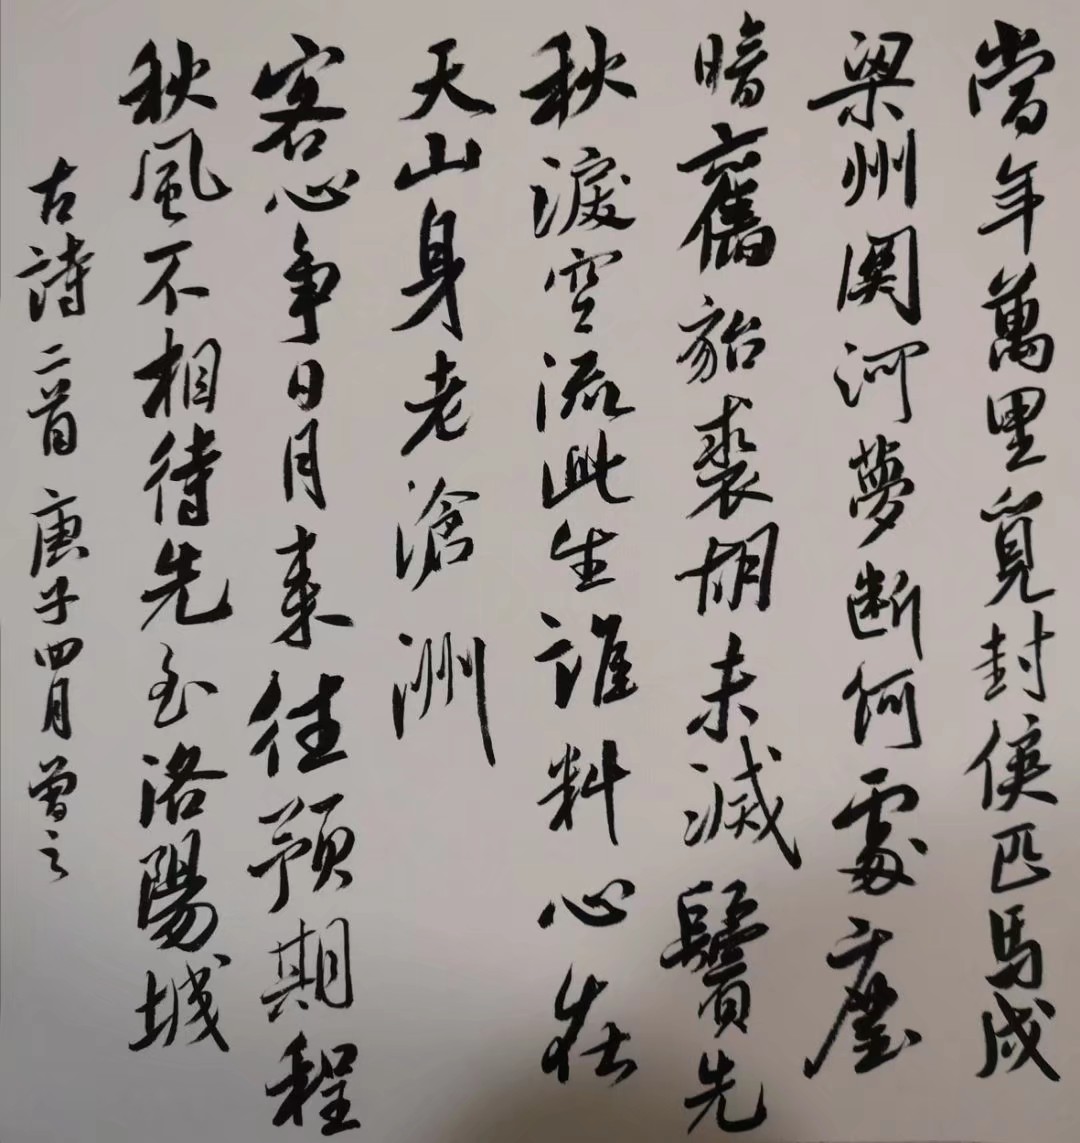 當年萬里覓封侯匹馬戍
梁州関河夢断何處塵
暗舊貂裘胡未滅鬢先
秋淚空流此生誰料心在
天山身老滄洲
客心爭日月来往預期程
秋風不相待先至洛陽城
古詩二首庚子四月曾之